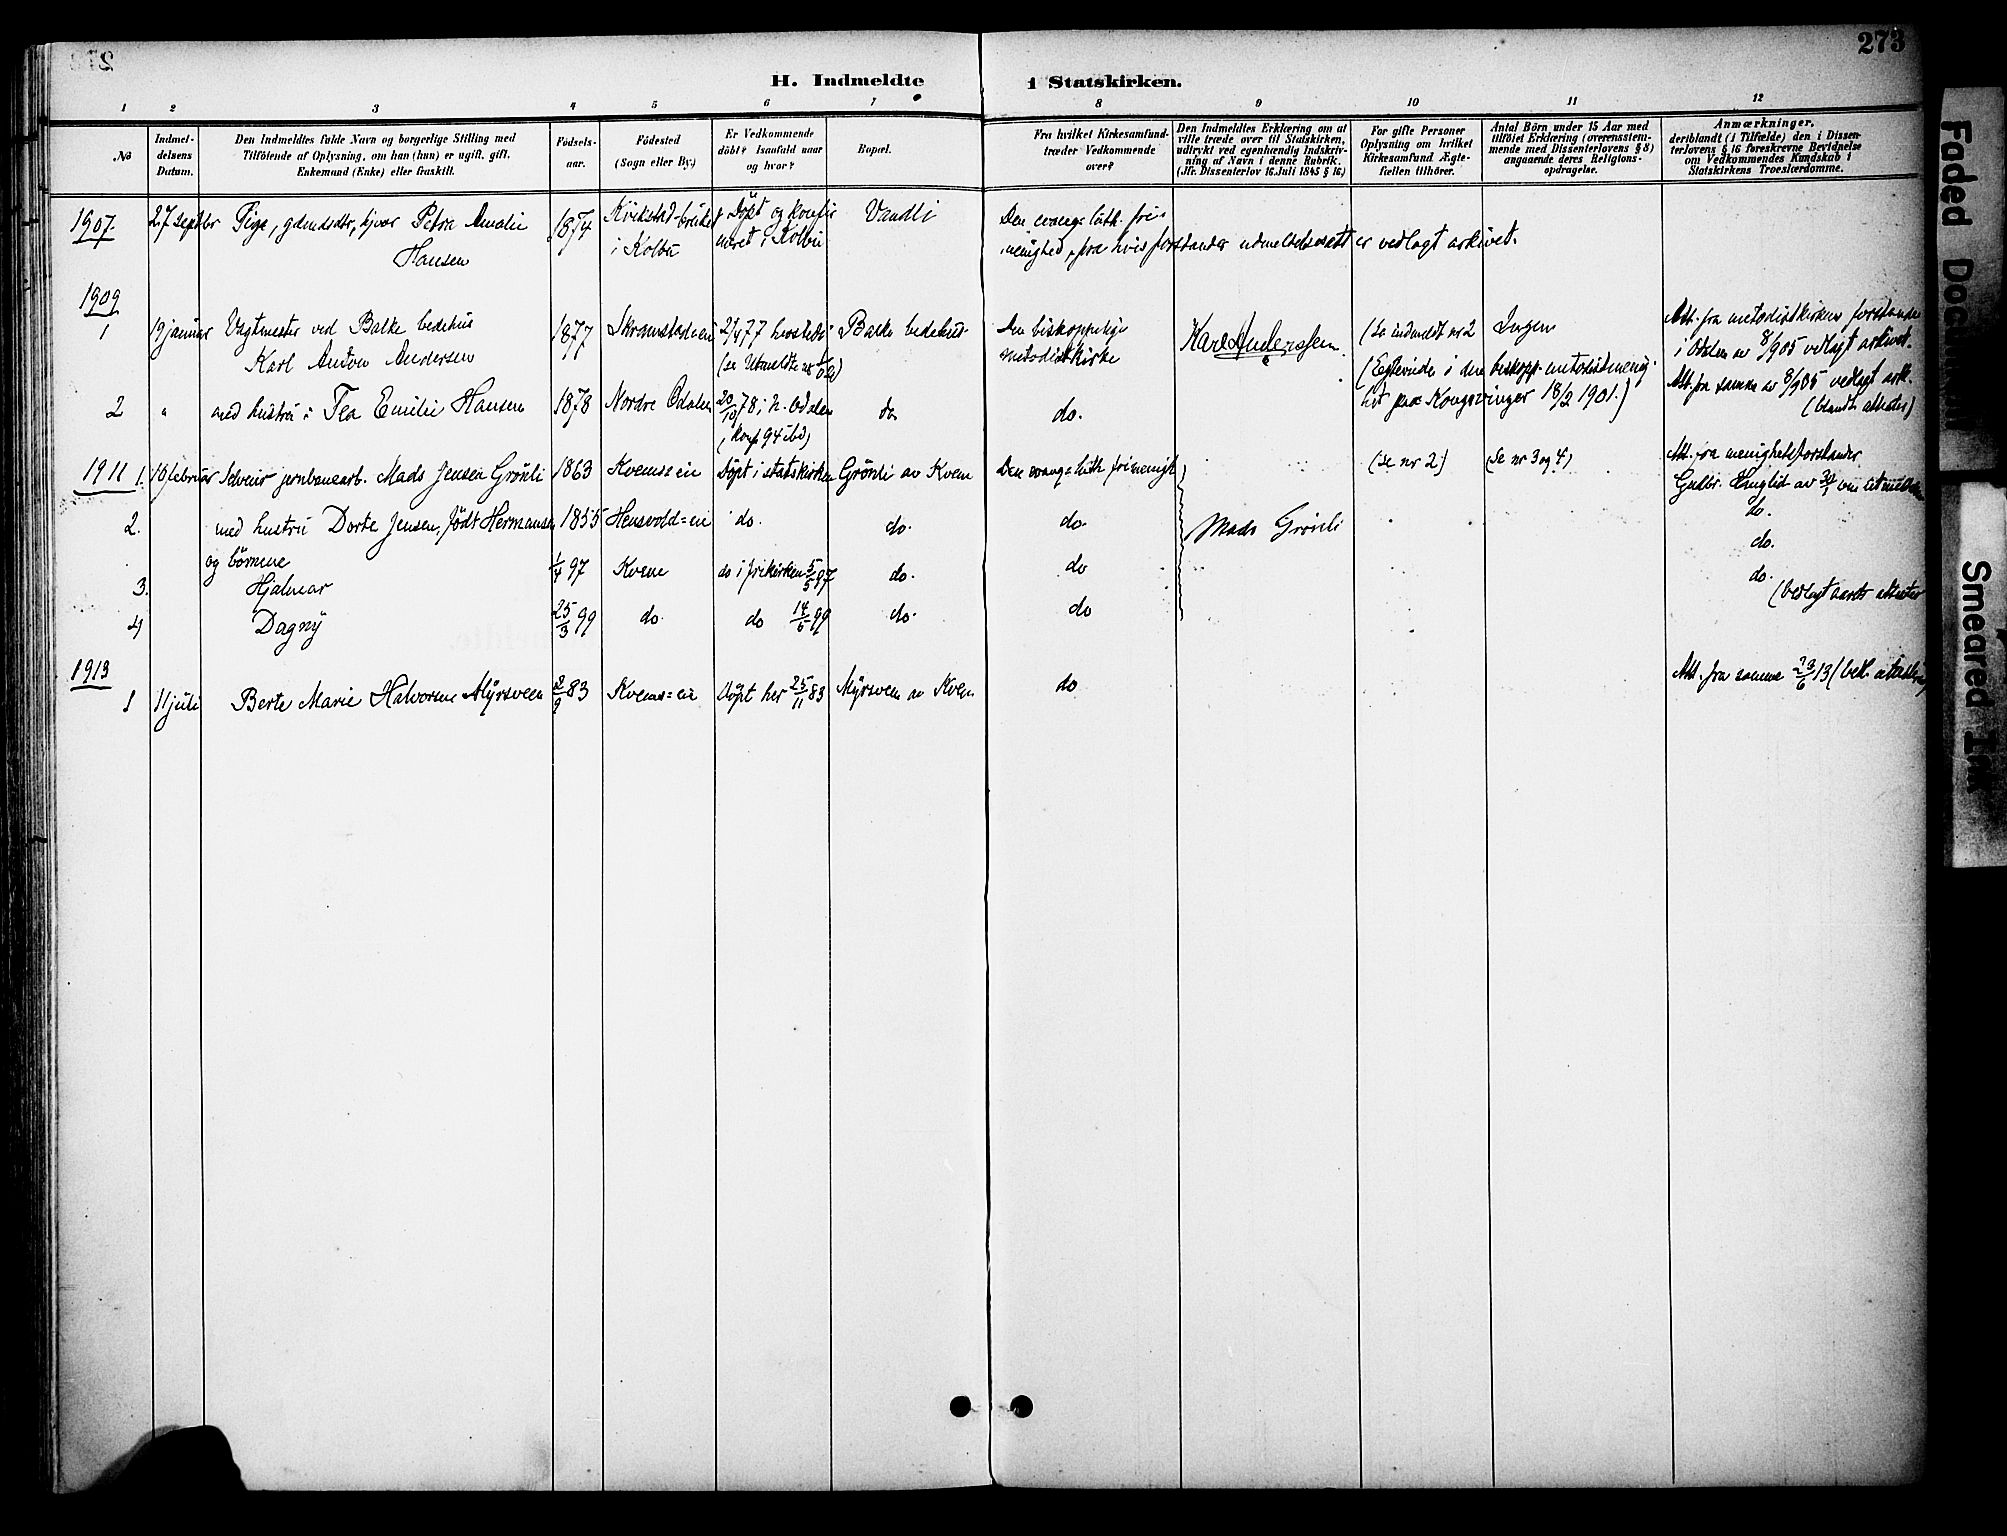 273
H. Indmeldte i Statskirken.
1 2 3 4 5 6 7 8 9 10 11 12
No
Indmel-
delsens
Datum.
Den Indmeldtes fulde Navn og borgerlige Stilling med
Tilföiende af Oplysning, om han (hun) er ugift, gift,
Enkemand (Enke) eller fraskilt.
Födsels-
aar.
Födested
(Sogn eller By.)
Er Vedkommende
döbt? Isaafald naar
og hvor?
Bopæl.
Fra hvilket Kirkesamfund-
træder Vedkommende
over?
Den Indmeldtes Erklæring om at
ville træde over til Statskirken,
udtrykt ved egenhændig Indskriv-
ning af Navn i denne Rubrik.
(Jfr. Dissenterlov 16. Juli 1845 § 16.)
For gifte Personer
Oplysning om hvilket
Kirkesamfund Ægte-
fællen tilhörer.
Antal Börn under 15 Aar med
tilföiet Erklæring (overensstem-
mende med Dissenterlovens § 8)
angaaende deres Religions-
opdragelse.
Anmærkninger,
deriblandt (i Tilfælde) den i Dissen-
terlovens § 16 foreskrevne Bevidnelse
om Vedkommendes Kundskab i
Statskirkens Troeslærdomme.
1907. 27 septbr Pige, gdmdsdtr, Petra Amalie
Hansen
1874
Kvikstad-bruket
i Kolbu
Döpt og konfir
meret i Kolbu
Vandli
Den evang. luth. fri-
menighed, fra hvis forstander udmeldelsesatt er vedlagt arkivet.
1909
1 19 januar Vagtmester ved Balke bedehus
Karl Anton Andersen
1877
Skramstad=eie
2/4 77 herstede
(se Utmeldte
Balke bedehus
Den biskoppelige
metodistkirke
Karl Anderssen
(se indmeldt nr 2
Ingen
Att. fra metodistkirkens forstander
i Odalen av 8/905 vedlagt arkivet.
2 " med hustru: Tea Emilie Hansen
1878
Nordre Odalen
20/10 78 i N. Odalen
(konf. 94 ibd)
do
do.
(Egteviede i den biskopp. metodistmenig-
het paa Kongsvinger 18/2 1901.)
Att. fra samme av 8/905 vedlagt ark.
(blandt attester)
1911 1. 10 februar Selveier jernbanearb. Mads Jensen Grönli
1863
Kvems=eie
Döpt i statskirken
Grönli av Kvem
Den evang=luth frimenigh
(se nr 2)
(Se nr 3 og 4)
Att. fra menighetsforstander
2. med hustru Dorte Jensen, född Hermansen
1855
Hensvold=eie
do.
do.
do.
Mads Grönli
do.
do.
og börnene
3. Hjalmar
1/4 97
Kvem
do i frikirken 5/5 97
do.
do
do.
(Vedlagt aarets attester
4 Dagny
25/3 99
do
do 14/5 99
do.
do
1913
1 11 juli Berte Marie Halvorsen Myrsveen
2/9 83
Kvems=eie
Döpt her 25/11 83
Myrsveen av Kvem
do
Att. fra samme
Faded Document
Smeared Ink